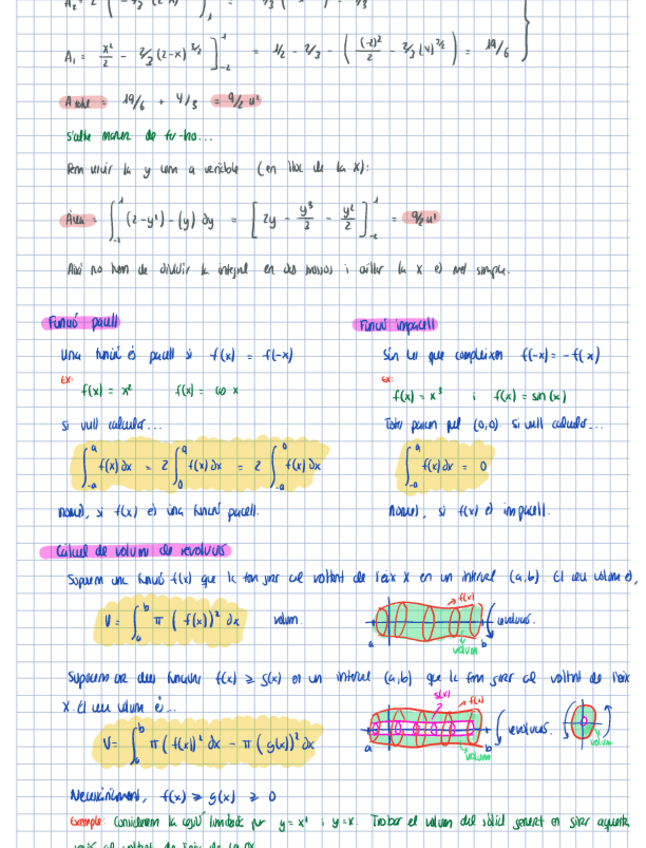 A₁ = x²/2 - 2/3 (2-x)^3/2 ]₋₂¹ = 1/2 - 2/3 - ( (-2)²/2 - 2/3 (4)^3/2 ) = 19/6
A total = 19/6 + 4/3 = 9/2 u²
s'altre manera de fer-ho...
Fem servir la y com a variable (en lloc de la x):
Àrea = ∫₋₂¹ (2-y²) - (y) dy = [ 2y - y³/3 - y²/2 ]₋₂¹ = 9/2 u²
Així no hem de dividir la integral en dos trossos i aïllar la x és més simple.
Funció parell
Una funció és parell si f(x) = f(-x)
Ex:
f(x) = x² f(x) = cos x
si vull calcular...
∫₋ₐᵃ f(x) dx = 2 ∫₀ᵃ f(x) dx = 2 ∫₋ₐ⁰ f(x) dx
només, si f(x) és una funció parell.
Funció imparell
Són les que compleixen f(-x) = -f(x)
ex:
f(x) = x³ i f(x) = sin(x)
Totes passen pel (0,0). si vull calcular...
∫₋ₐᵃ f(x) dx = 0
només, si f(x) és imparell.
Càlcul de volums de revolució
Suposem una funció f(x) que la fem girar al voltant de l'eix X en un interval (a,b). El seu volum és,
V = ∫ₐᵇ π (f(x))² dx volum.
f(x)
a b
revolució.
volum
Suposem ara dues funcions f(x) ≥ g(x) en un interval (a,b) que la fem girar al voltant de l'eix
X. El seu volum és...
V = ∫ₐᵇ π (f(x))² dx - π (g(x))² dx
g(x) f(x)
a b
revolució.
volum
volum
Necessàriament, f(x) ≥ g(x) ≥ 0
Exemple: Considerem la regió limitada per y = x² i y = x. Trobar el volum del sòlid generat en girar aquesta